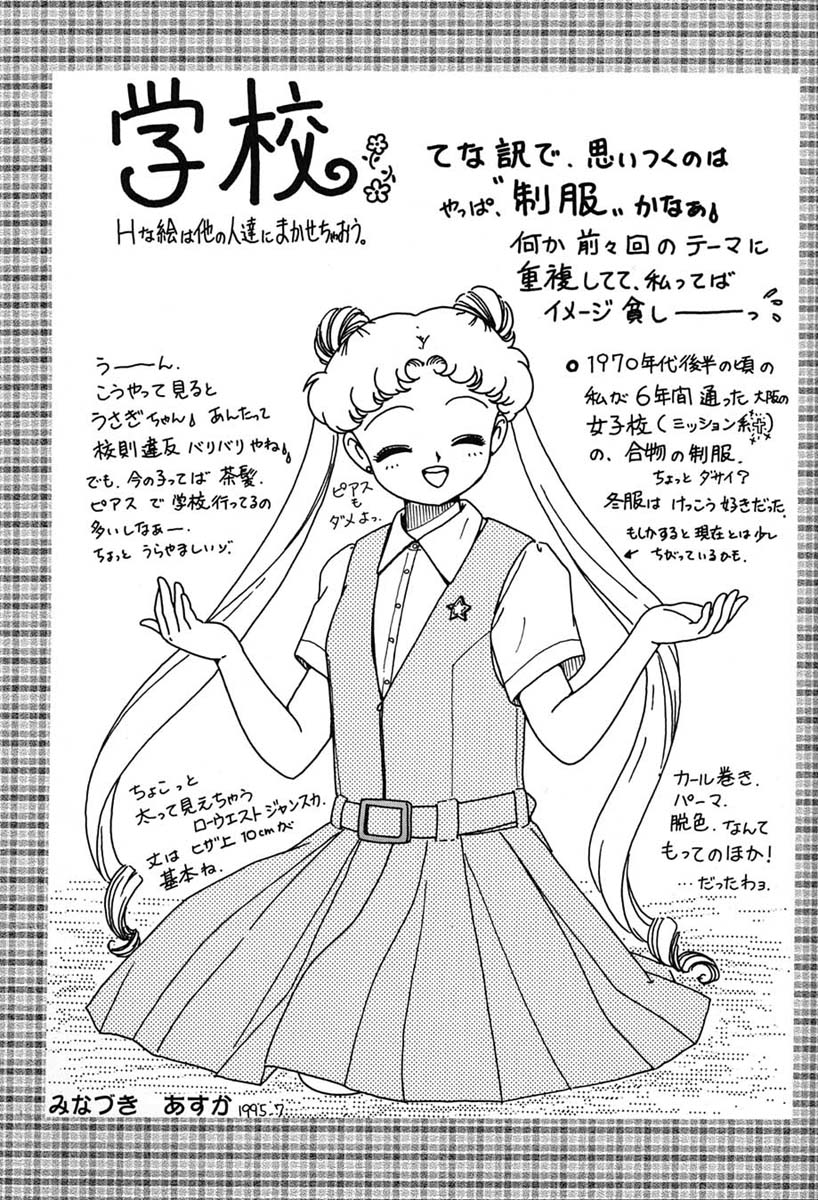 学校
Hな絵は他の人達にまかせちゃおう。
てな訳で、思いつくのは
やっぱ、〝制服〟かなぁ
何か前々回のテーマに
重複してて、私ってば
イメージ貧しーーっ
○1970年代後半の頃の
私が6年間通った大阪の
女子校(ミッション系)
の、合物の制服。
ちょっとダサイ?
冬服はけっこう好きだった。
もしかすると現在とは少し
←ちがっているかも。
うーーん。
こうやって見ると
うさぎちゃん♪あんたって
校則違反バリバリやね♪
でも、今の子ってば茶髪、
ピアスで学校行ってるの
多いしなぁー。
ちょっとうらやましいゾ。
ピアス
も
ダメよっ。
ちょこっと
太って見えちゃう
ローウエストジャンスカ。
丈はヒザ上10cmが
基本ね。
カール巻き、
パーマ、
脱色、なんて
もってのほか!
…だったわョ。
みなづき あすか 1995.7